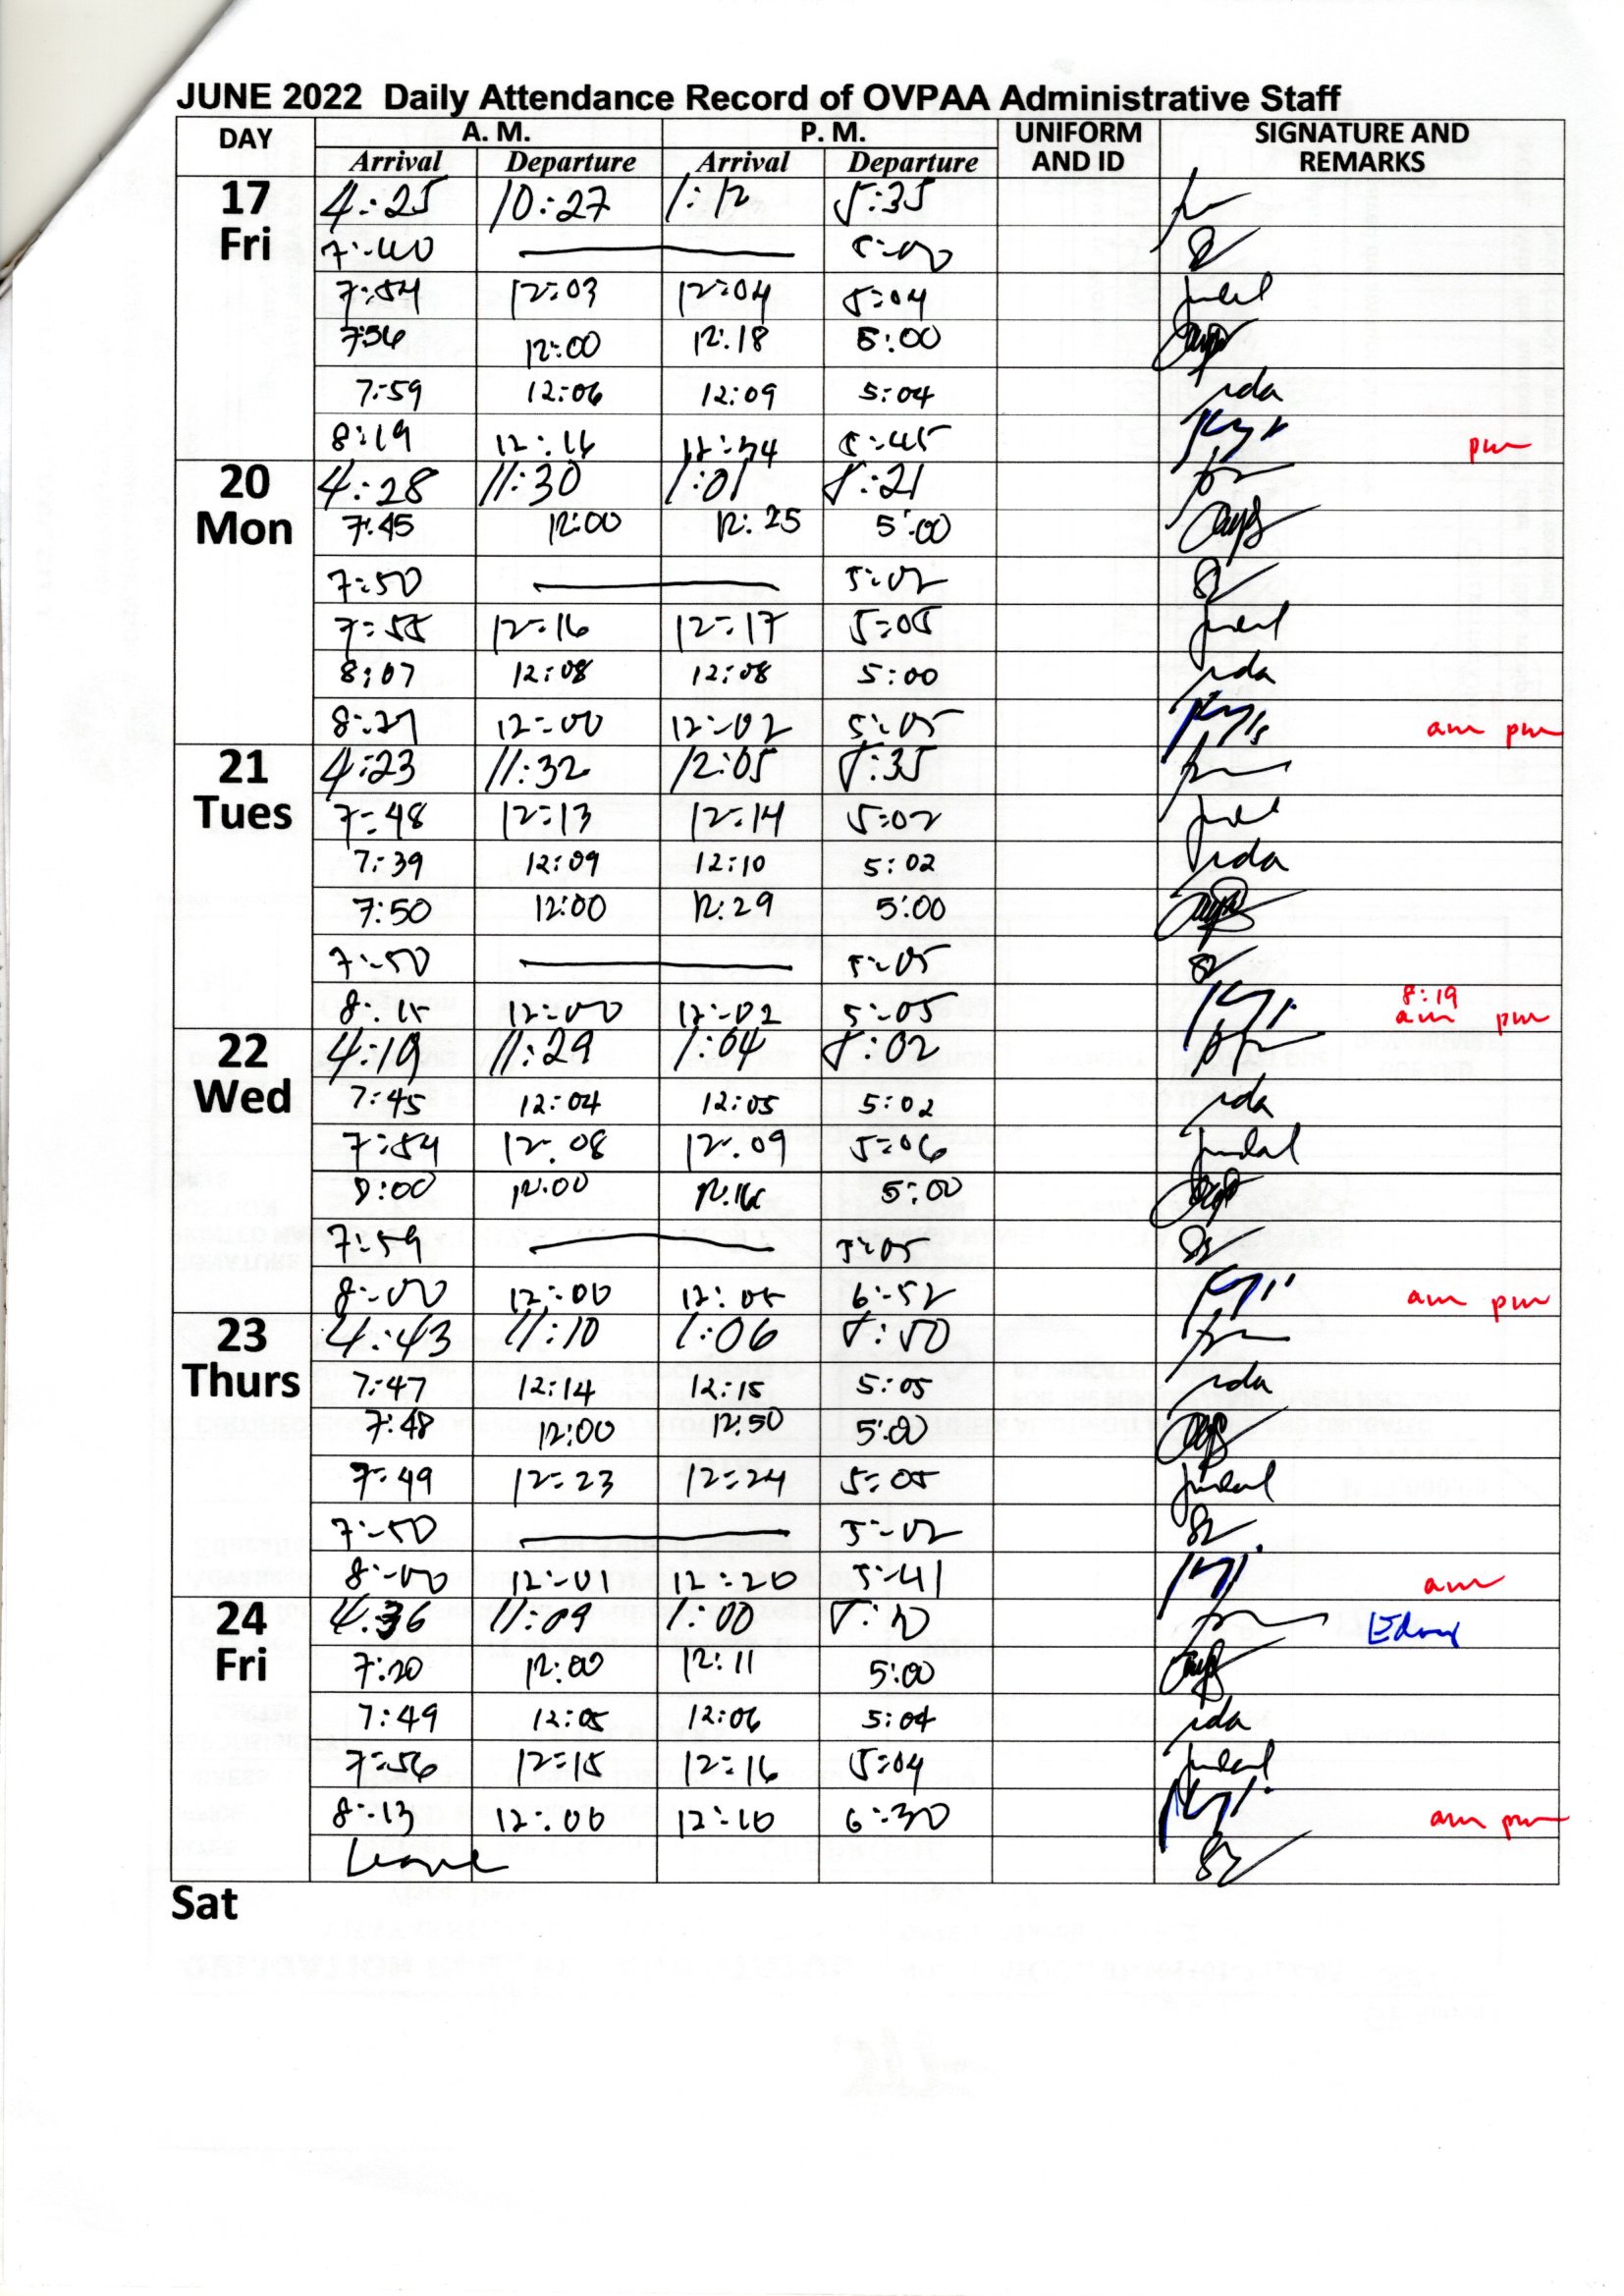 JUNE 2022 Daily Attendance Record of OVPAA Administrative Staff
DAY A. M. P. M. UNIFORM AND ID SIGNATURE AND REMARKS
Arrival Departure Arrival Departure
17 Fri
4:25 10:27 1:12 5:35
7:40 5:00
7:54 12:03 12:04 5:04
7:56 12:00 12:18 5:00
7:59 12:06 12:09 5:04 nda
8:19 12:16 5:45 pm
20 Mon
4:28 11:30 1:01 5:21
7:45 12:00 12:25 5:00
7:50 5:02
7:55 12:16 12:17 5:05
8:07 12:08 12:08 5:00 nda
12:00 12:02 5:05 am pm
21 Tues
4:23 11:32 12:05 5:35
7:48 12:13 12:14 5:02
7:39 12:09 12:10 5:02 nda
7:50 12:00 12:29 5:00
7:50 5:05
8:15 12:00 12:02 5:05 8:19 am pm
22 Wed
4:19 11:29 1:04 5:02
7:45 12:04 12:05 5:02 nda
7:54 12:08 12:09 5:06
8:00 12:00 12:16 5:00
7:59 5:05
8:00 12:00 12:05 6:52 am pm
23 Thurs
4:43 11:10 1:06 5:50
7:47 12:14 12:15 5:05 nda
7:48 12:00 12:50 5:00
7:49 12:23 12:24 5:05
7:50 5:02
8:00 12:01 12:20 5:41 am
24 Fri
4:36 11:09 1:00
7:20 12:00 12:11 5:00
7:49 12:05 12:06 5:04 nda
7:56 12:15 12:16 5:04
8:13 12:00 12:10 6:30 am pm
Leave
Sat